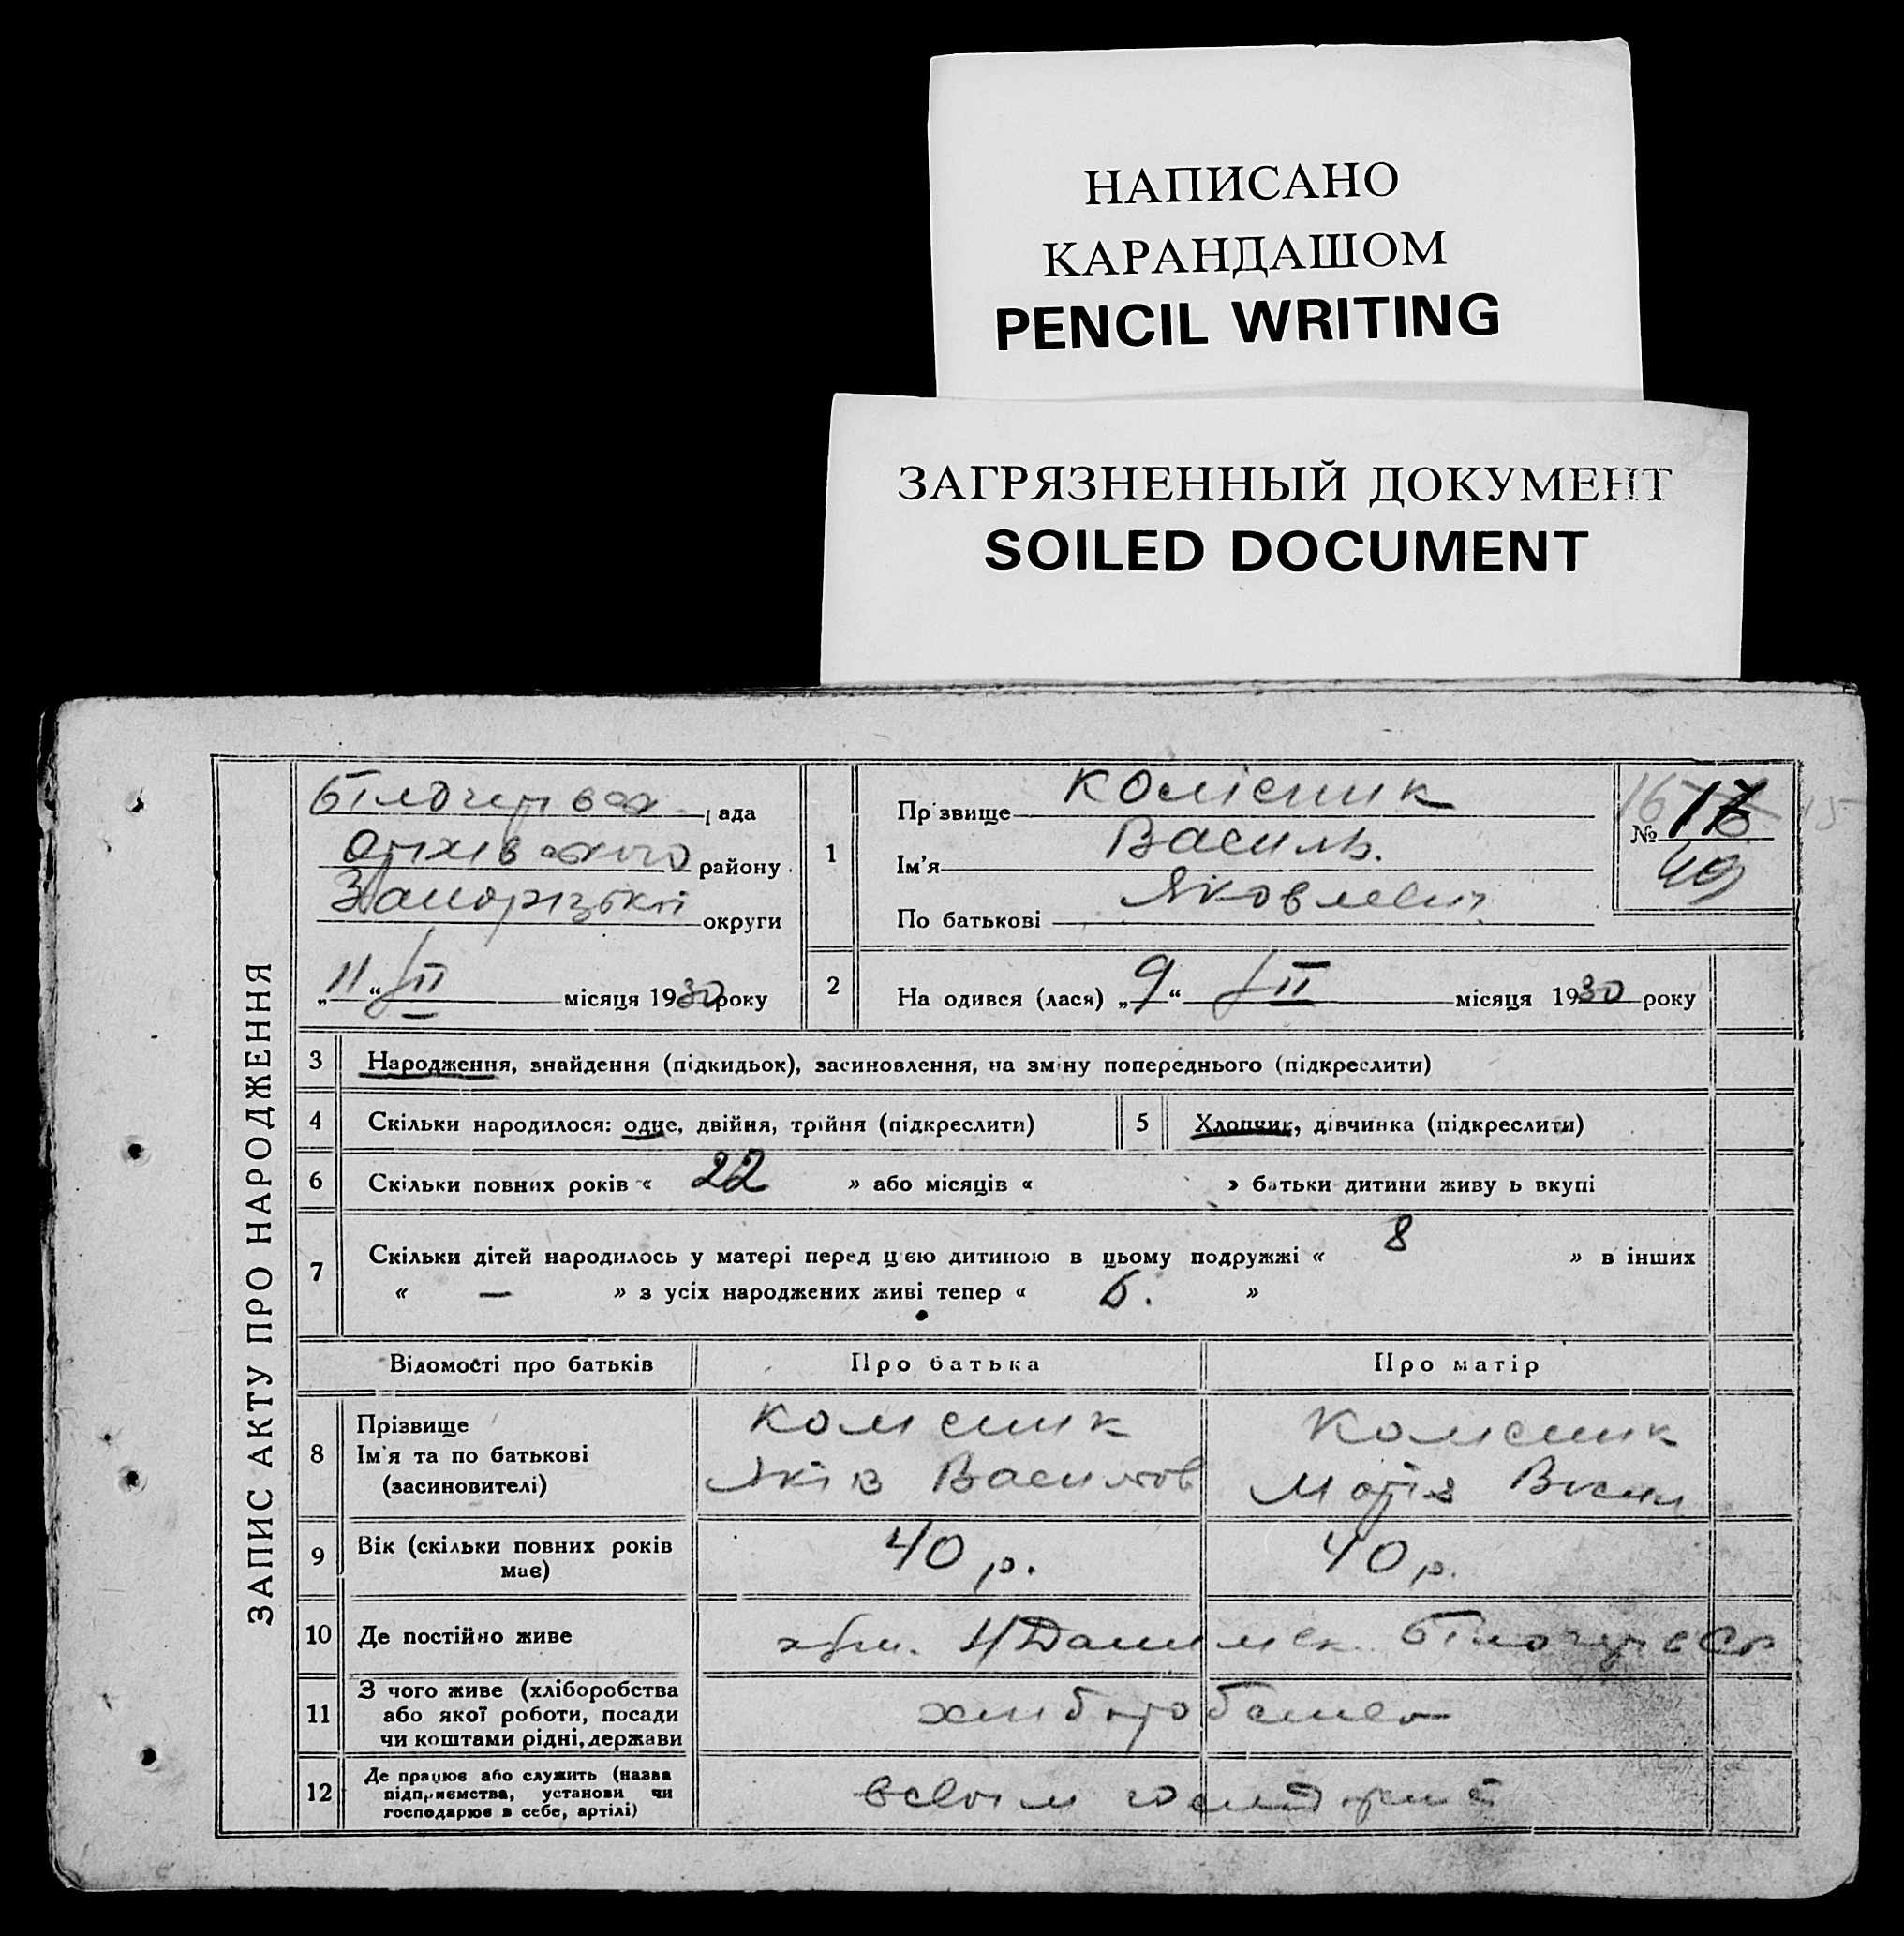 НАПИСАНО
КАРАНДАШОМ
PENCIL WRITING
ЗАГРЯЗНЕННЫЙ ДОКУМЕНТ
SOILED DOCUMENT
ЗАПИС АКТУ ПРО НАРОДЖЕННЯ
рада
Оріхівського району
Запорізької округи
„11“ II місяця 1930 року
1
Прізвище Колісник
Ім'я Василь.
По батькові Яковлевич
№ 17
49
2 На одився (лася) „9“ II місяця 1930 року
3 Народження, знайдення (підкидьок), засиновлення, на зміну попереднього (підкреслити)
4 Скільки народилося: одне, двійня, трійня (підкреслити) 5 Хлопчик, дівчинка (підкреслити)
6 Скільки повних років « 22 » або місяців « » батьки дитини живу ь вкупі
7 Скільки дітей народилось у матері перед цією дитиною в цьому подружжі « 8 » в інших
« — » з усіх народжених живі тепер « »
Відомості про батьків Про батька Про матір
8 Прізвище
Ім'я та по батькові
(засиновителі)
Колісник
Яків Васильов
Колісник
Марія Васил
9 Вік (скільки повних років
має)
40 р. 40 р.
10 Де постійно живе
11 З чого живе (хліборобства
або якої роботи, посади
чи коштами рідні, держави
12 Де працює або служить (назва
підприємства, установи чи
господарює в себе, артілі)
в своїм